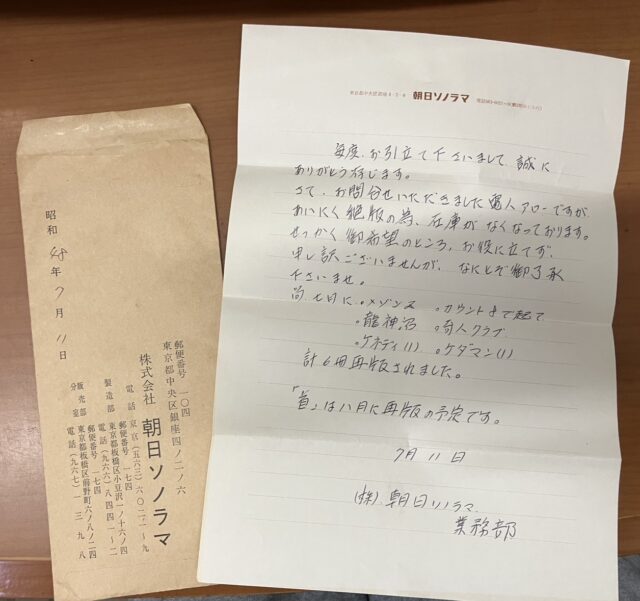 昭和48年7月11日
郵便番号 一〇四
東京都中央区銀座四ノ二ノ六
株式会社 朝日ソノラマ
電話 東京(五六三)六〇二一〜九
製造部 郵便番号 一七四
東京都板橋区小豆沢一ノ十六ノ四
電話(九六六)八四四一〜二
販売部分室 郵便番号 一七四
東京都板橋区前野町六ノ八ノ二四
電話(九六七)一三九八
東京都中央区銀座4-2-6 朝日ソノラマ
毎度、お引立て下さいまして、誠に
ありがとう存じます。
さて、お問合せいただきました電人アローですが、
あいにく絶版の為、在庫がなくなっております。
せっかく御希望のところ、お役に立てず、
申し訳ございませんが、なにとぞ御了承
下さいませ。
尚、七日に、・メゾンZ ・カウント8で起て
・龍神沼 ・奇人クラブ
・ケネディ(1) ・ケダマン(1)
計6冊再版されました。
「首」は八月に再版の予定です。
7月11日
(株)朝日ソノラマ
業務部